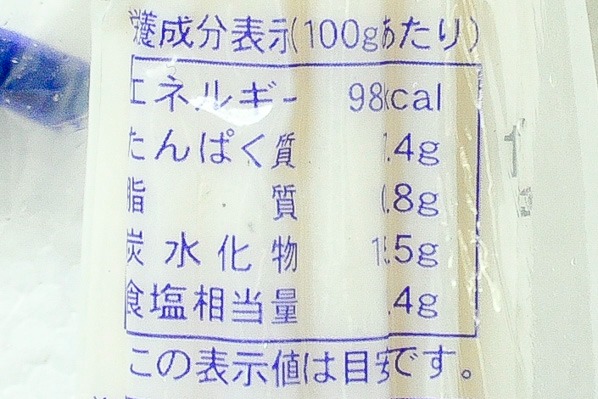 栄養成分表示(100gあたり)
エネルギー 98kcal
たんぱく質 .4g
脂質 .8g
炭水化物 1.5g
食塩相当量 .4g
この表示値は目安です。